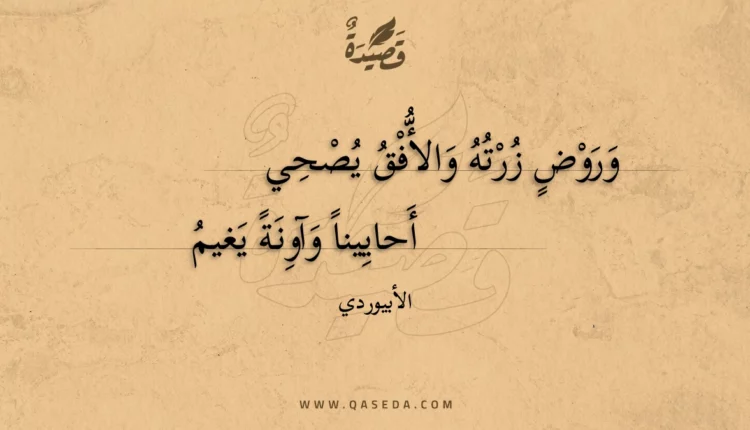 قَصِيْدَةٌ
وَرَوْضٍ زُرْتُهُ وَالأُّفْقُ يُصْحِي
أَحايِيناً وَآوِنَةً يَغيمُ
الأبيوردي
WWW.QASEDA.COM